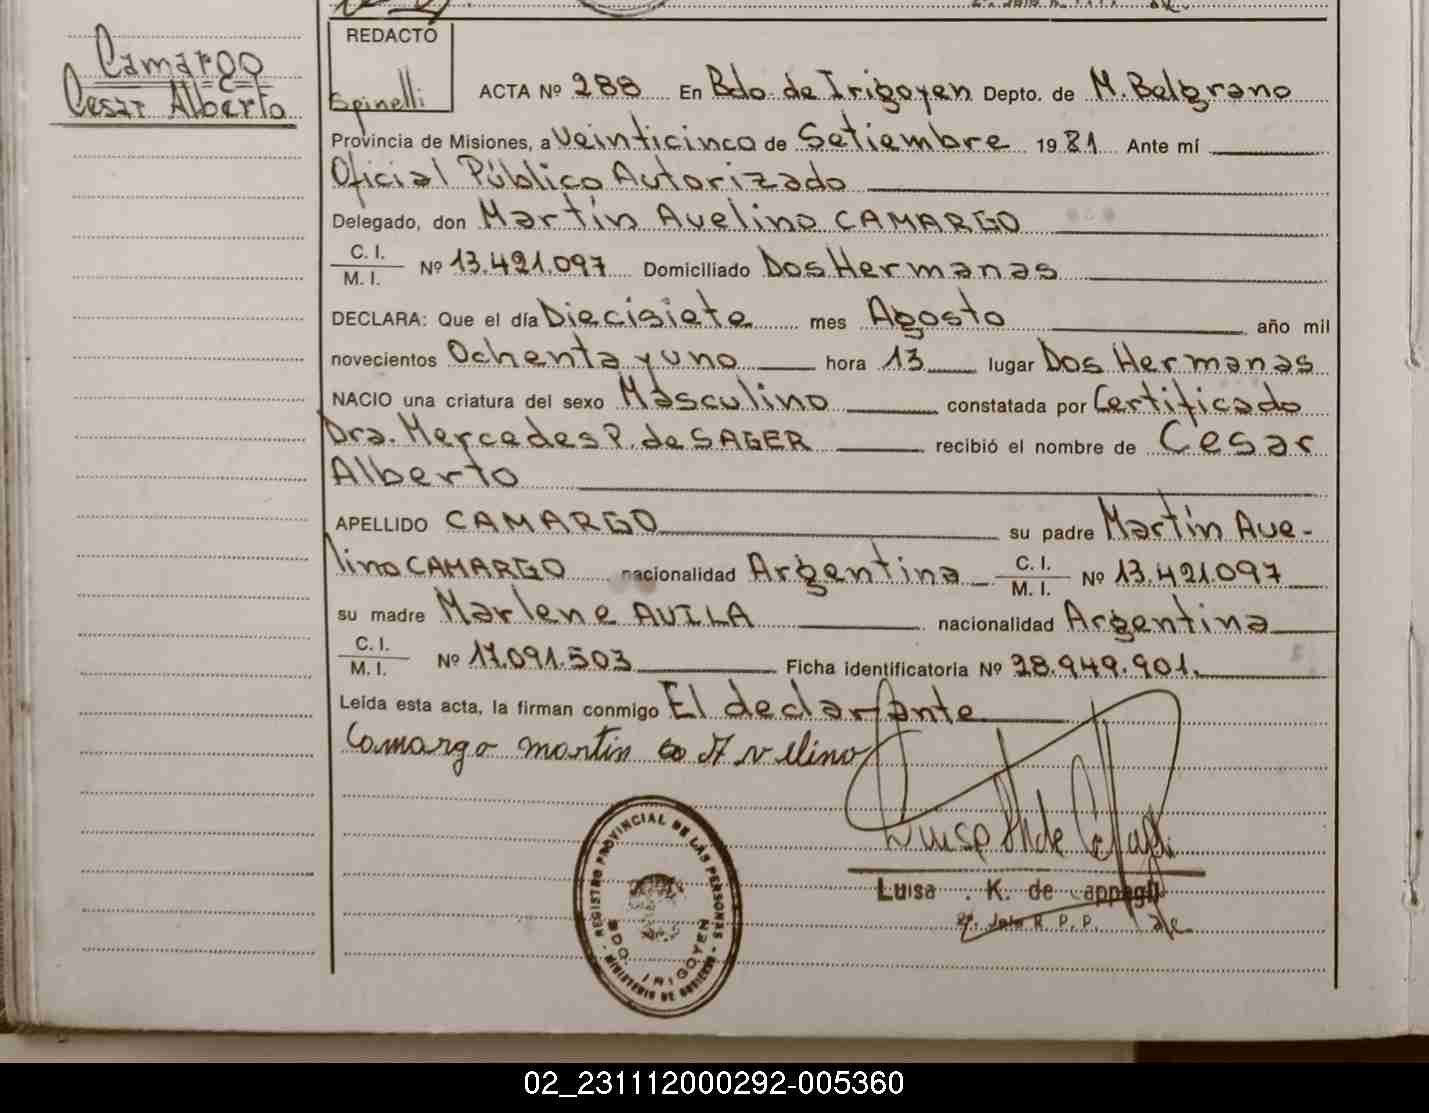 Camargo
Cesar Alberto
REDACTO
Spinelli
ACTA Nº 288 En Bdo. de Irigoyen Depto. de M. Belgrano
Provincia de Misiones, a Veinticinco de Setiembre 19 81 Ante mí
Oficial Público Autorizado
Delegado, don Martín Avelino CAMARGO
C. I.
M. I. Nº 13.421.097 Domiciliado Dos Hermanas
DECLARA: Que el día Diecisiete mes Agosto año mil
novecientos Ochenta y uno hora 13 lugar Dos Hermanas
NACIO una criatura del sexo Masculino constatada por Certificado
Dra. Mercedes P. de SAGER recibió el nombre de Cesar
Alberto
APELLIDO CAMARGO su padre Martín Ave-
lino CAMARGO nacionalidad Argentina C. I.
M. I. Nº 13.421.097
su madre Marlene AVILA nacionalidad Argentina
C. I.
M. I. Nº 17.091.503 Ficha identificatoria Nº 28.949.901.
Leída esta acta, la firman conmigo El declarante
Camargo martin Avelino
REGISTRO PROVINCIAL DE LAS PERSONAS
BDO. IRIGOYEN
MINISTERIO DE GOBIERNO
Luisa K. de
R. P. P.
02_231112000292-005360